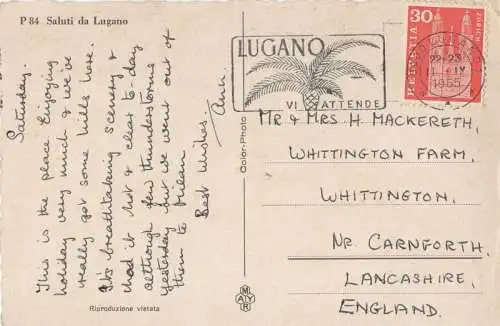 P 84 Saluti da Lugano
Saturday.
This is the place. Enjoying
holiday very much & we've
really got some hills here.
It's breathtaking scenery &
had it hot & clear to-day
although few thunderstorms
yesterday but we went out of
them to Milan
Best Wishes,
Riproduzione vietata
Color-Photo
MAYR
LUGANO
VI ATTENDE
30
HELVETIA
ZÜRICH
22-23
1965
MR & MRS H MACKERETH,
WHITTINGTON FARM,
WHITTINGTON.
NR CARNFORTH,
LANCASHIRE,
ENGLAND.